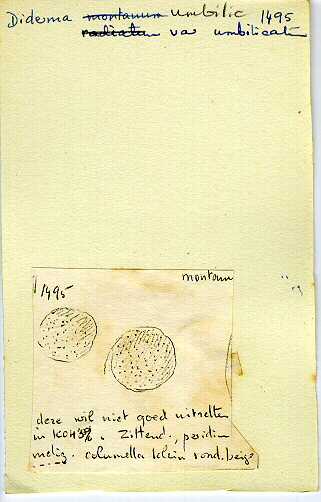 Diderma montanum umbilic 1495
radiatum var umbilicatum
montanum
1495
deze wil niet goed uitzetten
in KOH 3%. Zittend., peridium
melig. columella klein rond. beige